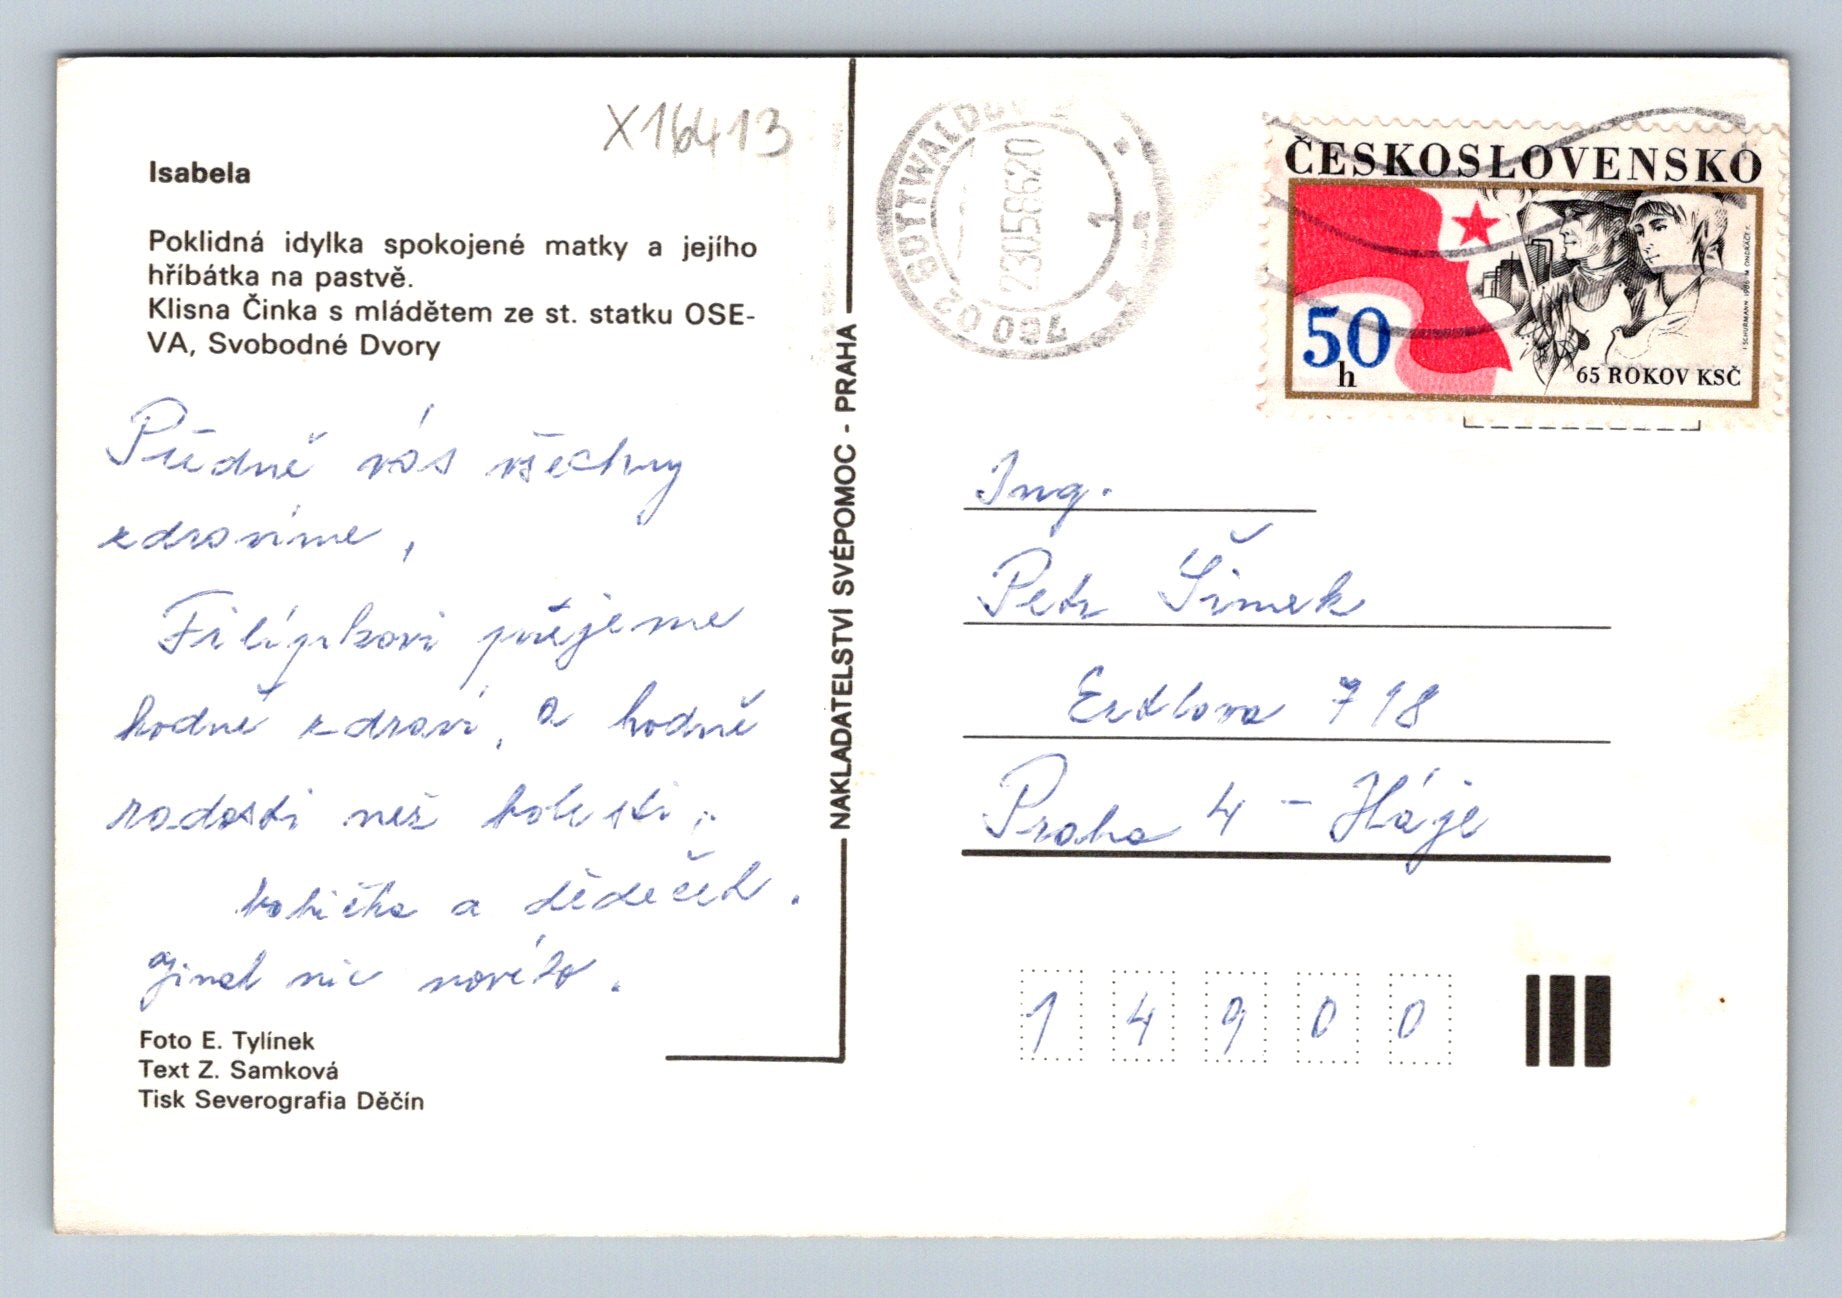 X16413
Isabela
Poklidná idylka spokojené matky a jejího
hříbátka na pastvě.
Klisna Činka s mládětem ze st. statku OSE-
VA, Svobodné Dvory
vás všechny
zdravíme,
Filípkovi přejeme
hodně zdraví, a hodně
radosti než bolesti,
babička a dědeček.
jinak nic nového.
Foto E. Tylínek
Text Z. Samková
Tisk Severografia Děčín
NAKLADATELSTVÍ SVÉPOMOC - PRAHA
760 02 GOTTWALDOV
23.05.86.20
1
ČESKOSLOVENSKO
50
h
65 ROKOV KSČ
I. SCHURMANN 1986 M. ONDRÁČEK
Ing.
Petr Šimek
Ertlova 718
Praha 4 - Háje
14900